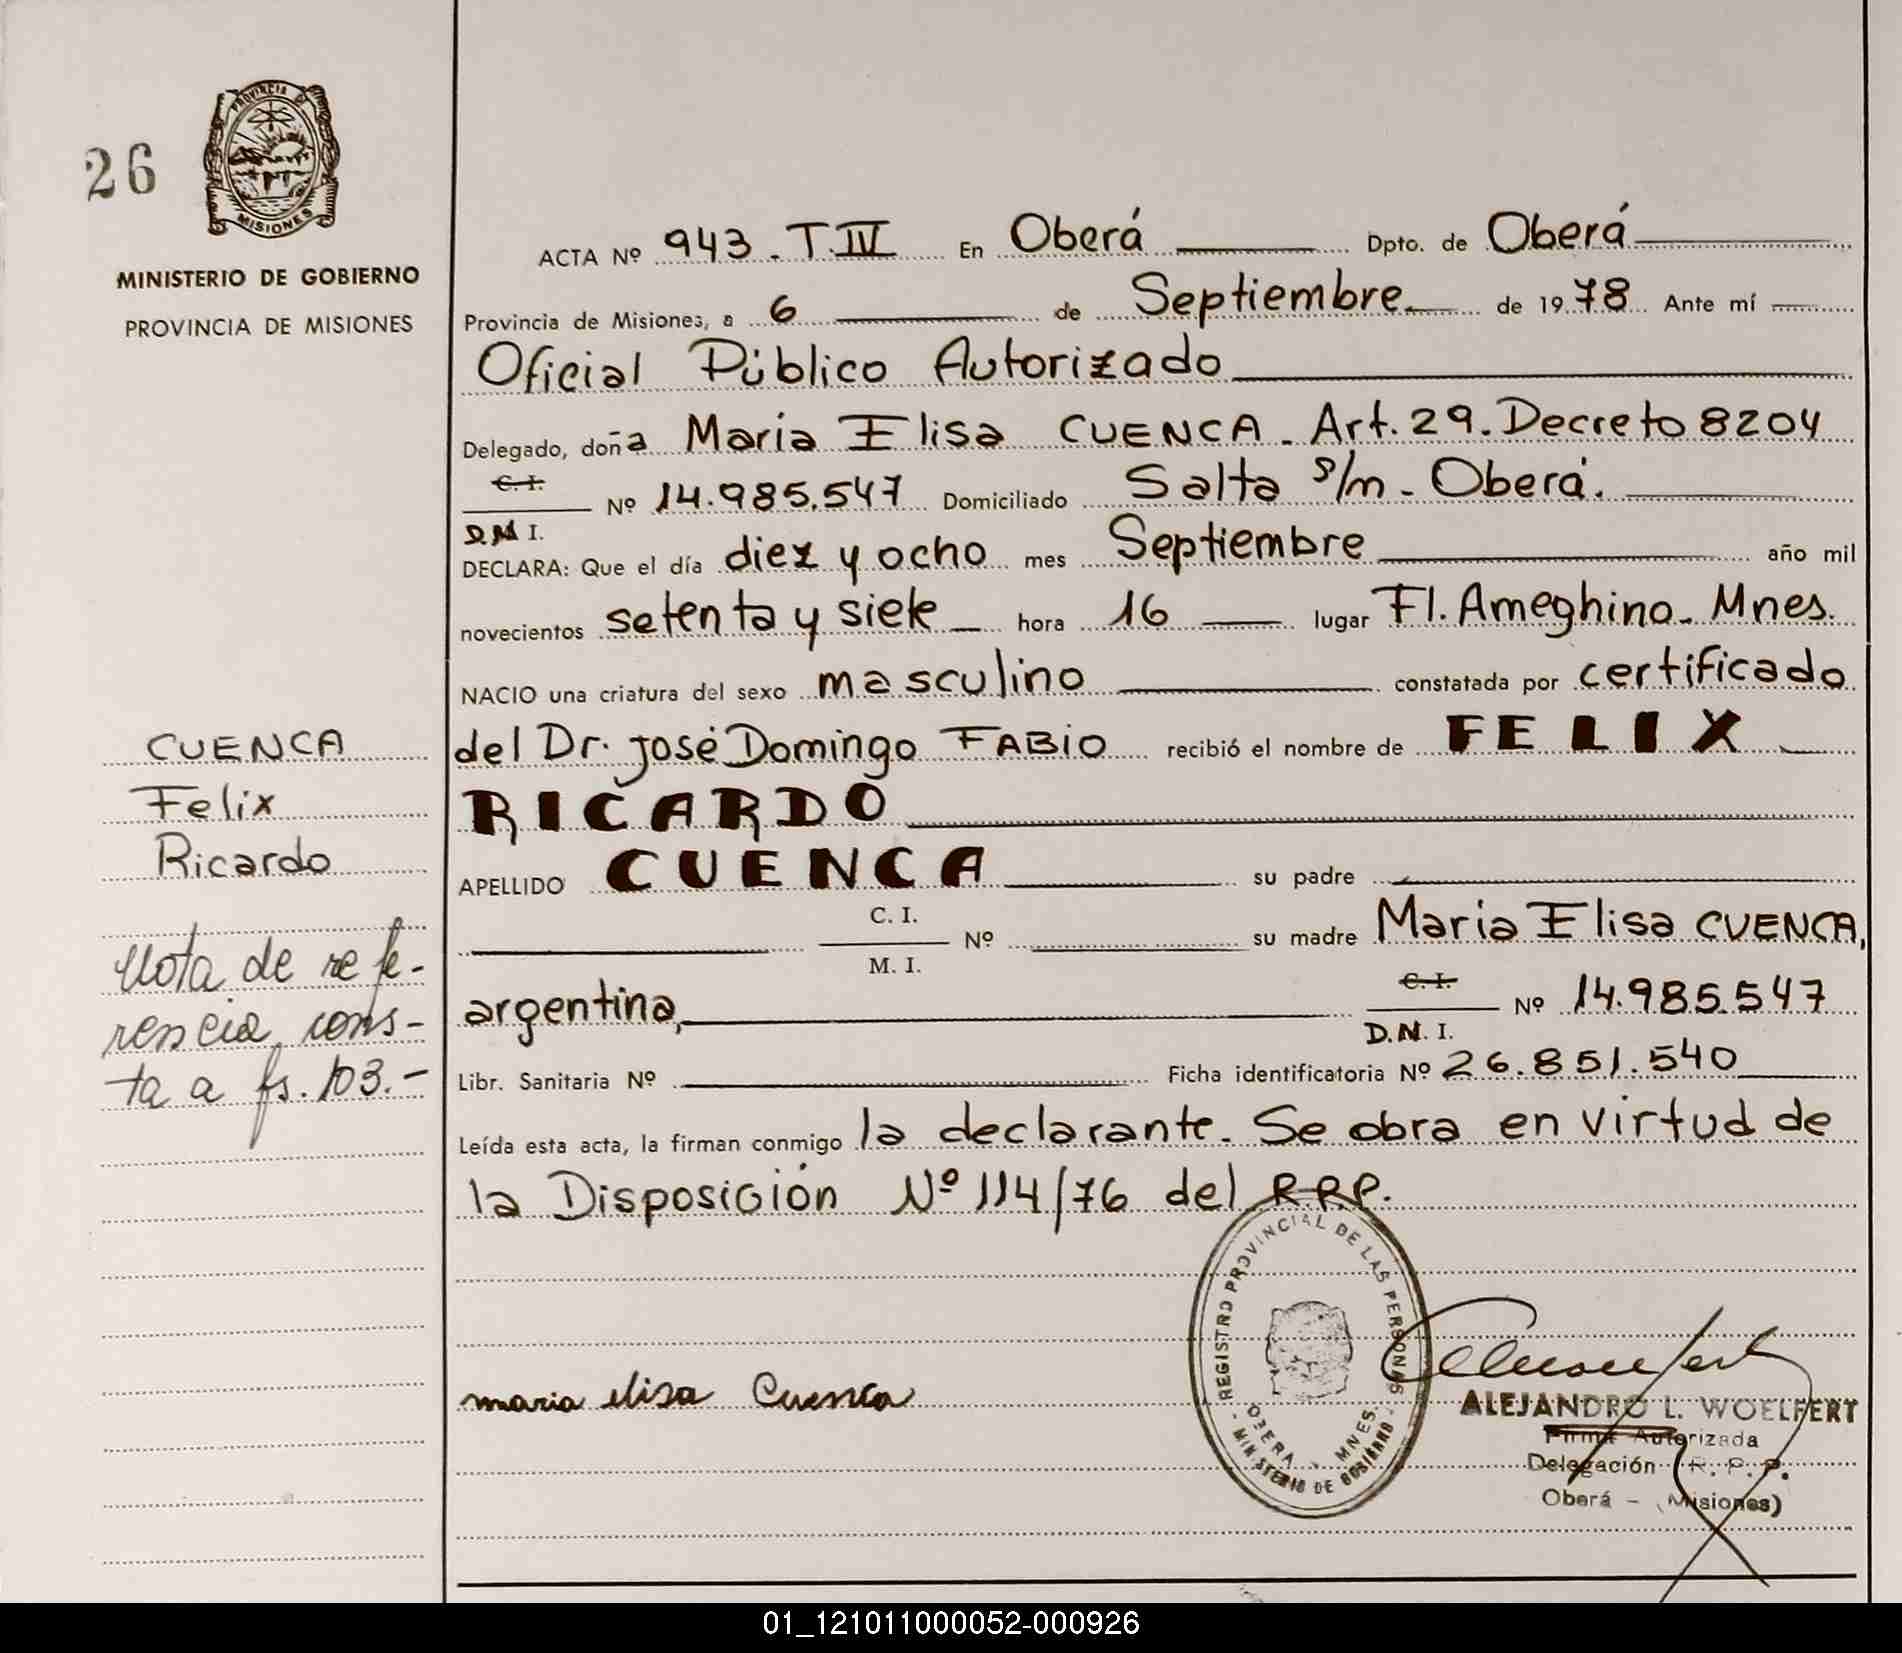 26
PROVINCIA DE
MISIONES
MINISTERIO DE GOBIERNO
PROVINCIA DE MISIONES
ACTA Nº 943. T. IV En Oberá Dpto. de Oberá
Provincia de Misiones, a 6 de Septiembre de 1978 Ante mí
Oficial Público Autorizado
Delegado, doña Maria Elisa CUENCA. Art. 29. Decreto 8204
C. I.
Nº 14.985.547 Domiciliado Salta s/n - Oberá.
D.N I.
DECLARA: Que el día diez y ocho mes Septiembre año mil
novecientos setenta y siete hora 16 lugar Fl. Ameghino. Mnes.
NACIO una criatura del sexo masculino constatada por certificado
del Dr. José Domingo FABIO recibió el nombre de FELIX
RICARDO
APELLIDO CUENCA su padre
C. I.
Nº su madre Maria Elisa CUENCA,
M. I.
argentina,
C. I.
Nº 14.985.547
D.N. I.
Libr. Sanitaria Nº Ficha identificatoria Nº 26.851.540
Leída esta acta, la firman conmigo la declarante. Se obra en virtud de
la Disposición Nº 114/76 del R.P.P.
CUENCA
Felix
Ricardo
Nota de refe-
rencia cons-
ta a fs. 103.-
maria elisa Cuenca
REGISTRO PROVINCIAL DE LAS PERSONAS
OBERA - MNES.
- MINISTERIO DE GOBIERNO -
ALEJANDRO L. WOELFERT
Firma Autorizada
Delegación R. P. P.
Oberá - (Misiones)
01_121011000052-000926